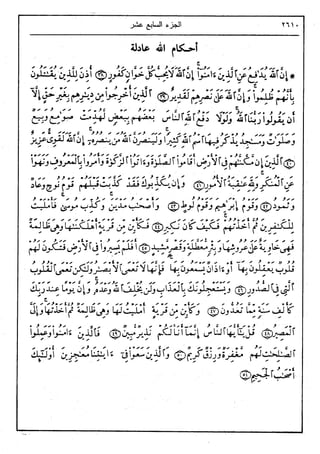 ٢٦١٠ الجزء السابع عشر
أحكام الله عادلة
* إِنَّ ٱللَّهَ يُدَٰفِعُ عَنِ ٱلَّذِينَ ءَامَنُوٓا۟ إِنَّ ٱللَّهَ لَا يُحِبُّ كُلَّ خَوَّانٍ كَفُورٍ ٣٨ أُذِنَ لِلَّذِينَ يُقَٰتَلُونَ
بِأَنَّهُمْ ظُلِمُوا۟ وَإِنَّ ٱللَّهَ عَلَىٰ نَصْرِهِمْ لَقَدِيرٌ ٣٩ ٱلَّذِينَ أُخْرِجُوا۟ مِن دِيَٰرِهِم بِغَيْرِ حَقٍّ إِلَّآ
أَن يَقُولُوا۟ رَبُّنَا ٱللَّهُ وَلَوْلَا دَفْعُ ٱللَّهِ ٱلنَّاسَ بَعْضَهُم بِبَعْضٍ لَّهُدِّمَتْ صَوَٰمِعُ وَبِيَعٌ
وَصَلَوَٰتٌ وَمَسَٰجِدُ يُذْكَرُ فِيهَا ٱسْمُ ٱللَّهِ كَثِيرًا وَلَيَنصُرَنَّ ٱللَّهُ مَن يَنصُرُهُۥٓ إِنَّ ٱللَّهَ لَقَوِىٌّ عَزِيزٌ
٤٠ ٱلَّذِينَ إِن مَّكَّنَّٰهُمْ فِى ٱلْأَرْضِ أَقَامُوا۟ ٱلصَّلَوٰةَ وَءَاتَوُا۟ ٱلزَّكَوٰةَ وَأَمَرُوا۟ بِٱلْمَعْرُوفِ وَنَهَوْا۟
عَنِ ٱلْمُنكَرِ وَلِلَّهِ عَٰقِبَةُ ٱلْأُمُورِ ٤١ وَإِن يُكَذِّبُوكَ فَقَدْ كَذَّبَتْ قَبْلَهُمْ قَوْمُ نُوحٍ وَعَادٌ
وَثَمُودُ ٤٢ وَقَوْمُ إِبْرَٰهِيمَ وَقَوْمُ لُوطٍ ٤٣ وَأَصْحَٰبُ مَدْيَنَ وَكُذِّبَ مُوسَىٰ فَأَمْلَيْتُ
لِلْكَٰفِرِينَ ثُمَّ أَخَذْتُهُمْ فَكَيْفَ كَانَ نَكِيرِ ٤٤ فَكَأَيِّن مِّن قَرْيَةٍ أَهْلَكْنَٰهَا وَهِىَ ظَالِمَةٌ
فَهِىَ خَاوِيَةٌ عَلَىٰ عُرُوشِهَا وَبِئْرٍ مُّعَطَّلَةٍ وَقَصْرٍ مَّشِيدٍ ٤٥ أَفَلَمْ يَسِيرُوا۟ فِى ٱلْأَرْضِ فَتَكُونَ لَهُمْ
قُلُوبٌ يَعْقِلُونَ بِهَآ أَوْ ءَاذَانٌ يَسْمَعُونَ بِهَا فَإِنَّهَا لَا تَعْمَى ٱلْأَبْصَٰرُ وَلَٰكِن تَعْمَى ٱلْقُلُوبُ
ٱلَّتِى فِى ٱلصُّدُورِ ٤٦ وَيَسْتَعْجِلُونَكَ بِٱلْعَذَابِ وَلَن يُخْلِفَ ٱللَّهُ وَعْدَهُۥ وَإِنَّ يَوْمًا عِندَ رَبِّكَ
كَأَلْفِ سَنَةٍ مِّمَّا تَعُدُّونَ ٤٧ وَكَأَيِّن مِّن قَرْيَةٍ أَمْلَيْتُ لَهَا وَهِىَ ظَالِمَةٌ ثُمَّ أَخَذْتُهَا وَإِلَىَّ
ٱلْمَصِيرُ ٤٨ قُلْ يَٰٓأَيُّهَا ٱلنَّاسُ إِنَّمَآ أَنَا۠ لَكُمْ نَذِيرٌ مُّبِينٌ ٤٩ فَٱلَّذِينَ ءَامَنُوا۟ وَعَمِلُوا۟
ٱلصَّٰلِحَٰتِ لَهُم مَّغْفِرَةٌ وَرِزْقٌ كَرِيمٌ ٥٠ وَٱلَّذِينَ سَعَوْا۟ فِىٓ ءَايَٰتِنَا مُعَٰجِزِينَ أُو۟لَٰٓئِكَ
أَصْحَٰبُ ٱلْجَحِيمِ ٥١